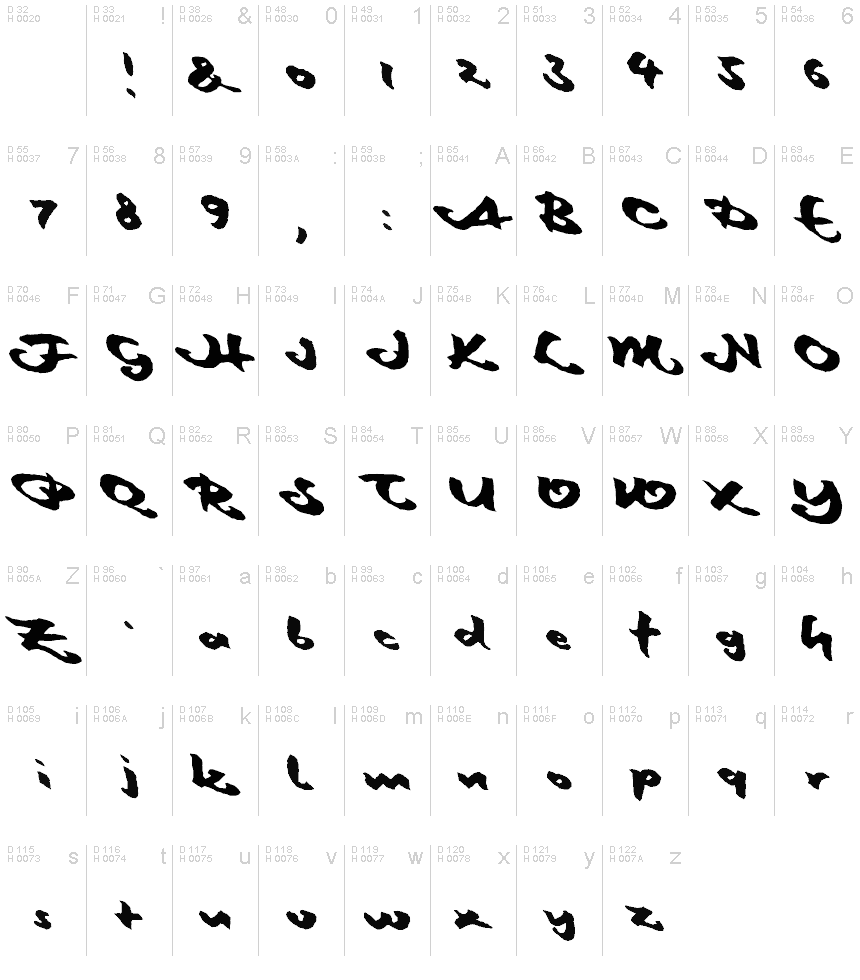 D 32 D 33 ! D 38 & D 48 0 D 49 1 D 50 2 D 51 3 D 52 4 D 53 5 D 54 6
H 0020 H 0021 H 0026 H 0030 H 0031 H 0032 H 0033 H 0034 H 0035 H 0036
! & 0 1 2 3 4 5 6
D 55 7 D 56 8 D 57 9 D 58 : D 59 ; D 65 A D 66 B D 67 C D 68 D D 69 E
H 0037 H 0038 H 0039 H 003A H 003B H 0041 H 0042 H 0043 H 0044 H 0045
7 8 9 , : A B C D E
D 70 F D 71 G D 72 H D 73 I D 74 J D 75 K D 76 L D 77 M D 78 N D 79 O
H 0046 H 0047 H 0048 H 0049 H 004A H 004B H 004C H 004D H 004E H 004F
F G H I J K L M N O
D 80 P D 81 Q D 82 R D 83 S D 84 T D 85 U D 86 V D 87 W D 88 X D 89 Y
H 0050 H 0051 H 0052 H 0053 H 0054 H 0055 H 0056 H 0057 H 0058 H 0059
P Q R S T U V W X Y
D 90 Z D 96 ` D 97 a D 98 b D 99 c D 100 d D 101 e D 102 f D 103 g D 104 h
H 005A H 0060 H 0061 H 0062 H 0063 H 0064 H 0065 H 0066 H 0067 H 0068
Z ` a b c d e f g h
D 105 i D 106 j D 107 k D 108 l D 109 m D 110 n D 111 o D 112 p D 113 q D 114 r
H 0069 H 006A H 006B H 006C H 006D H 006E H 006F H 0070 H 0071 H 0072
i j k l m n o p q r
D 115 s D 116 t D 117 u D 118 v D 119 w D 120 x D 121 y D 122 z
H 0073 H 0074 H 0075 H 0076 H 0077 H 0078 H 0079 H 007A
s t u v w x y z